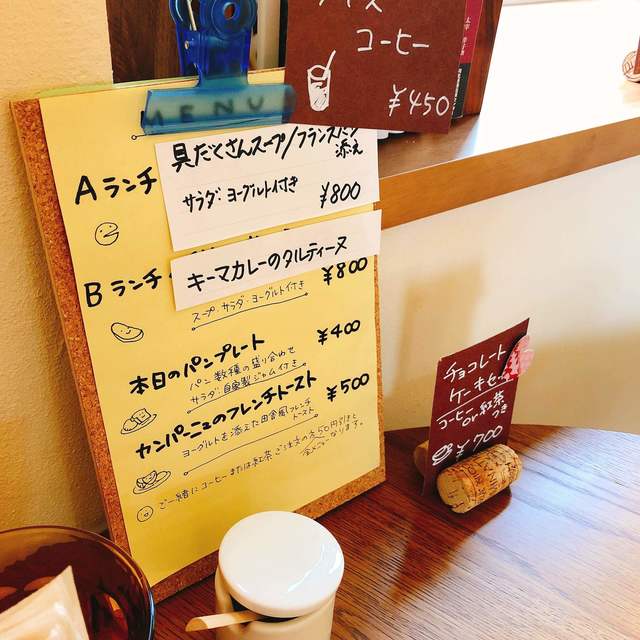 コーヒー
¥450
MENU
Aランチ
具だくさんスープ/フランスパン
添え
サラダ・ヨーグルト付き ¥800
Bランチ
キーマカレーのタルティーヌ
¥800
スープ・サラダ・ヨーグルト付き
本日のパンプレート ¥400
パン数種の盛り合わせ
サラダ・自家製ジャム付き
カンパーニュのフレンチトースト ¥500
ヨーグルトを添えた田舎風フレンチ
トースト
ご一緒にコーヒーまたは紅茶ご注文の方50円引きと
なります。
チョコレート
ケーキセット
コーヒーor紅茶
つき
¥700